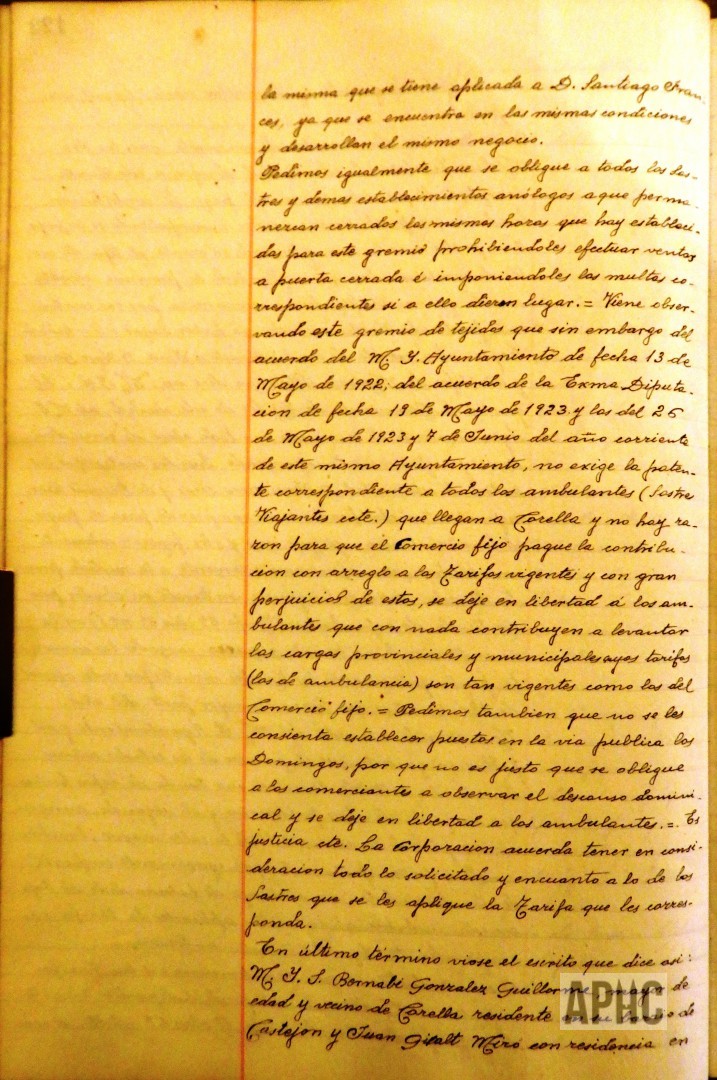 la misma que se tiene aplicada a D. Santiago Fran-
ces, ya que se encuentra en las mismas condiciones
y desarrollan el mismo negocio.
Pedimos igualmente que se obligue a todos los Sas-
tres y demas establecimientos anólogos a que perma-
nezcan cerrados las mismas horas que hay estableci-
das para este gremio prohibiendoles efectuar ventas
a puerta cerrada é imponiendoles las multas co-
rrespondientes si a ello dieren lugar. = Viene obser-
vando este gremio de tejidos que sin embargo del
acuerdo del M. Y. Ayuntamiento de fecha 13 de
Mayo de 1922; del acuerdo de la Exma Diputa-
cion de fecha 19 de Mayo de 1923 y los del 26
de Mayo de 1923 y 7 de Junio del año corriente
de este mismo Ayuntamiento, no exige la paten-
te correspondiente a todos los ambulantes (Sastres
Viajantes ecte.) que llegan a Corella y no hay ra-
zon para que el Comercio fijo pague la contribu-
cion con arreglo a las Tarifas vigentes y con gran
perjuicio de estos, se deje en libertad á los am-
bulantes que con nada contribuyen a levantar
las cargas provinciales y municipales cuyas tarifas
(las de ambulancia) son tan vigentes como las del
Comercio fijo. = Pedimos tambien que no se les
consienta establecer puestos en la via publica los
Domingos, por que no es justo que se obligue
a los comerciantes a observar el descanso domini-
cal y se deje en libertad a los ambulantes. = Es
justicia etc. La Corporacion acuerda tener en consi-
deracion todo lo solicitado y encuanto a lo de los
Sastres que se les aplique la Tarifa que les corres-
ponda.
En último término viose el escrito que dice asi:
M. Y. S. Bernabé Gonzalez Guillorme, mayor de
edad y vecino de Corella residente en su barrio de
Castejon y Juan Giralt Miró con residencia en
APHC